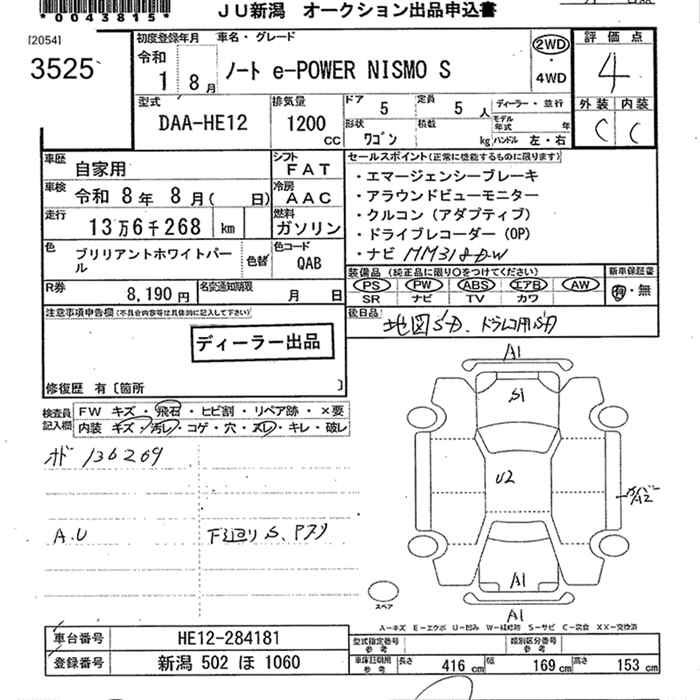 *0043815*
JU新潟 オークション出品申込書
[2054]
3525
初度登録年月
令和
1 8月
車名・グレード
ノート e-POWER NISMO S
2WD
・
4WD
評価点
4
外装 内装
C C
型式
DAA-HE12
排気量
1200
cc
ドア 5
定員 5 人
形状 ワゴン
積載 kg
ディーラー・並行
モデル年式 年
ハンドル 左・右
車歴
自家用
シフト
FAT
車検
令和 8年 8月( 日)
冷房
AAC
走行
13万6千268 km
燃料
ガソリン
色
ブリリアントホワイトパール
色替
色コード
QAB
R券
8,190円
名変通知期限
月 日
セールスポイント(正常に機能するものに限ります)
・エマージェンシーブレーキ
・アラウンドビューモニター
・クルコン(アダプティブ)
・ドライブレコーダー(OP)
・ナビ MM318D-W
装備品(純正品に限り○をつけてください)
PS PW ABS エアB AW
SR ナビ TV カワ
新車保証書
有・無
後日品
地図SD、ドラレコ用SD
注意事項申告欄(不具合内容等は具体的に記入して下さい)
ディーラー出品
修復歴 有〔箇所 〕
検査員
記入欄
FW キズ・飛石・ヒビ割・リペア跡・×要
内装 キズ・汚レ・コゲ・穴・スレ・キレ・破レ
オド 136269
A.U
下廻りS、
A1
S1
U2
A2
A1
A1
スペア
A－キズ E－エクボ U－凹み W－補修跡 S－サビ C－腐食 XX－交換済
車台番号
HE12-284181
登録番号
新潟 502 ほ 1060
型式指定番号
参考
類別区分番号
参考
車庫証明用
参考
長さ 416 cm
幅 169 cm
高さ 153 cm